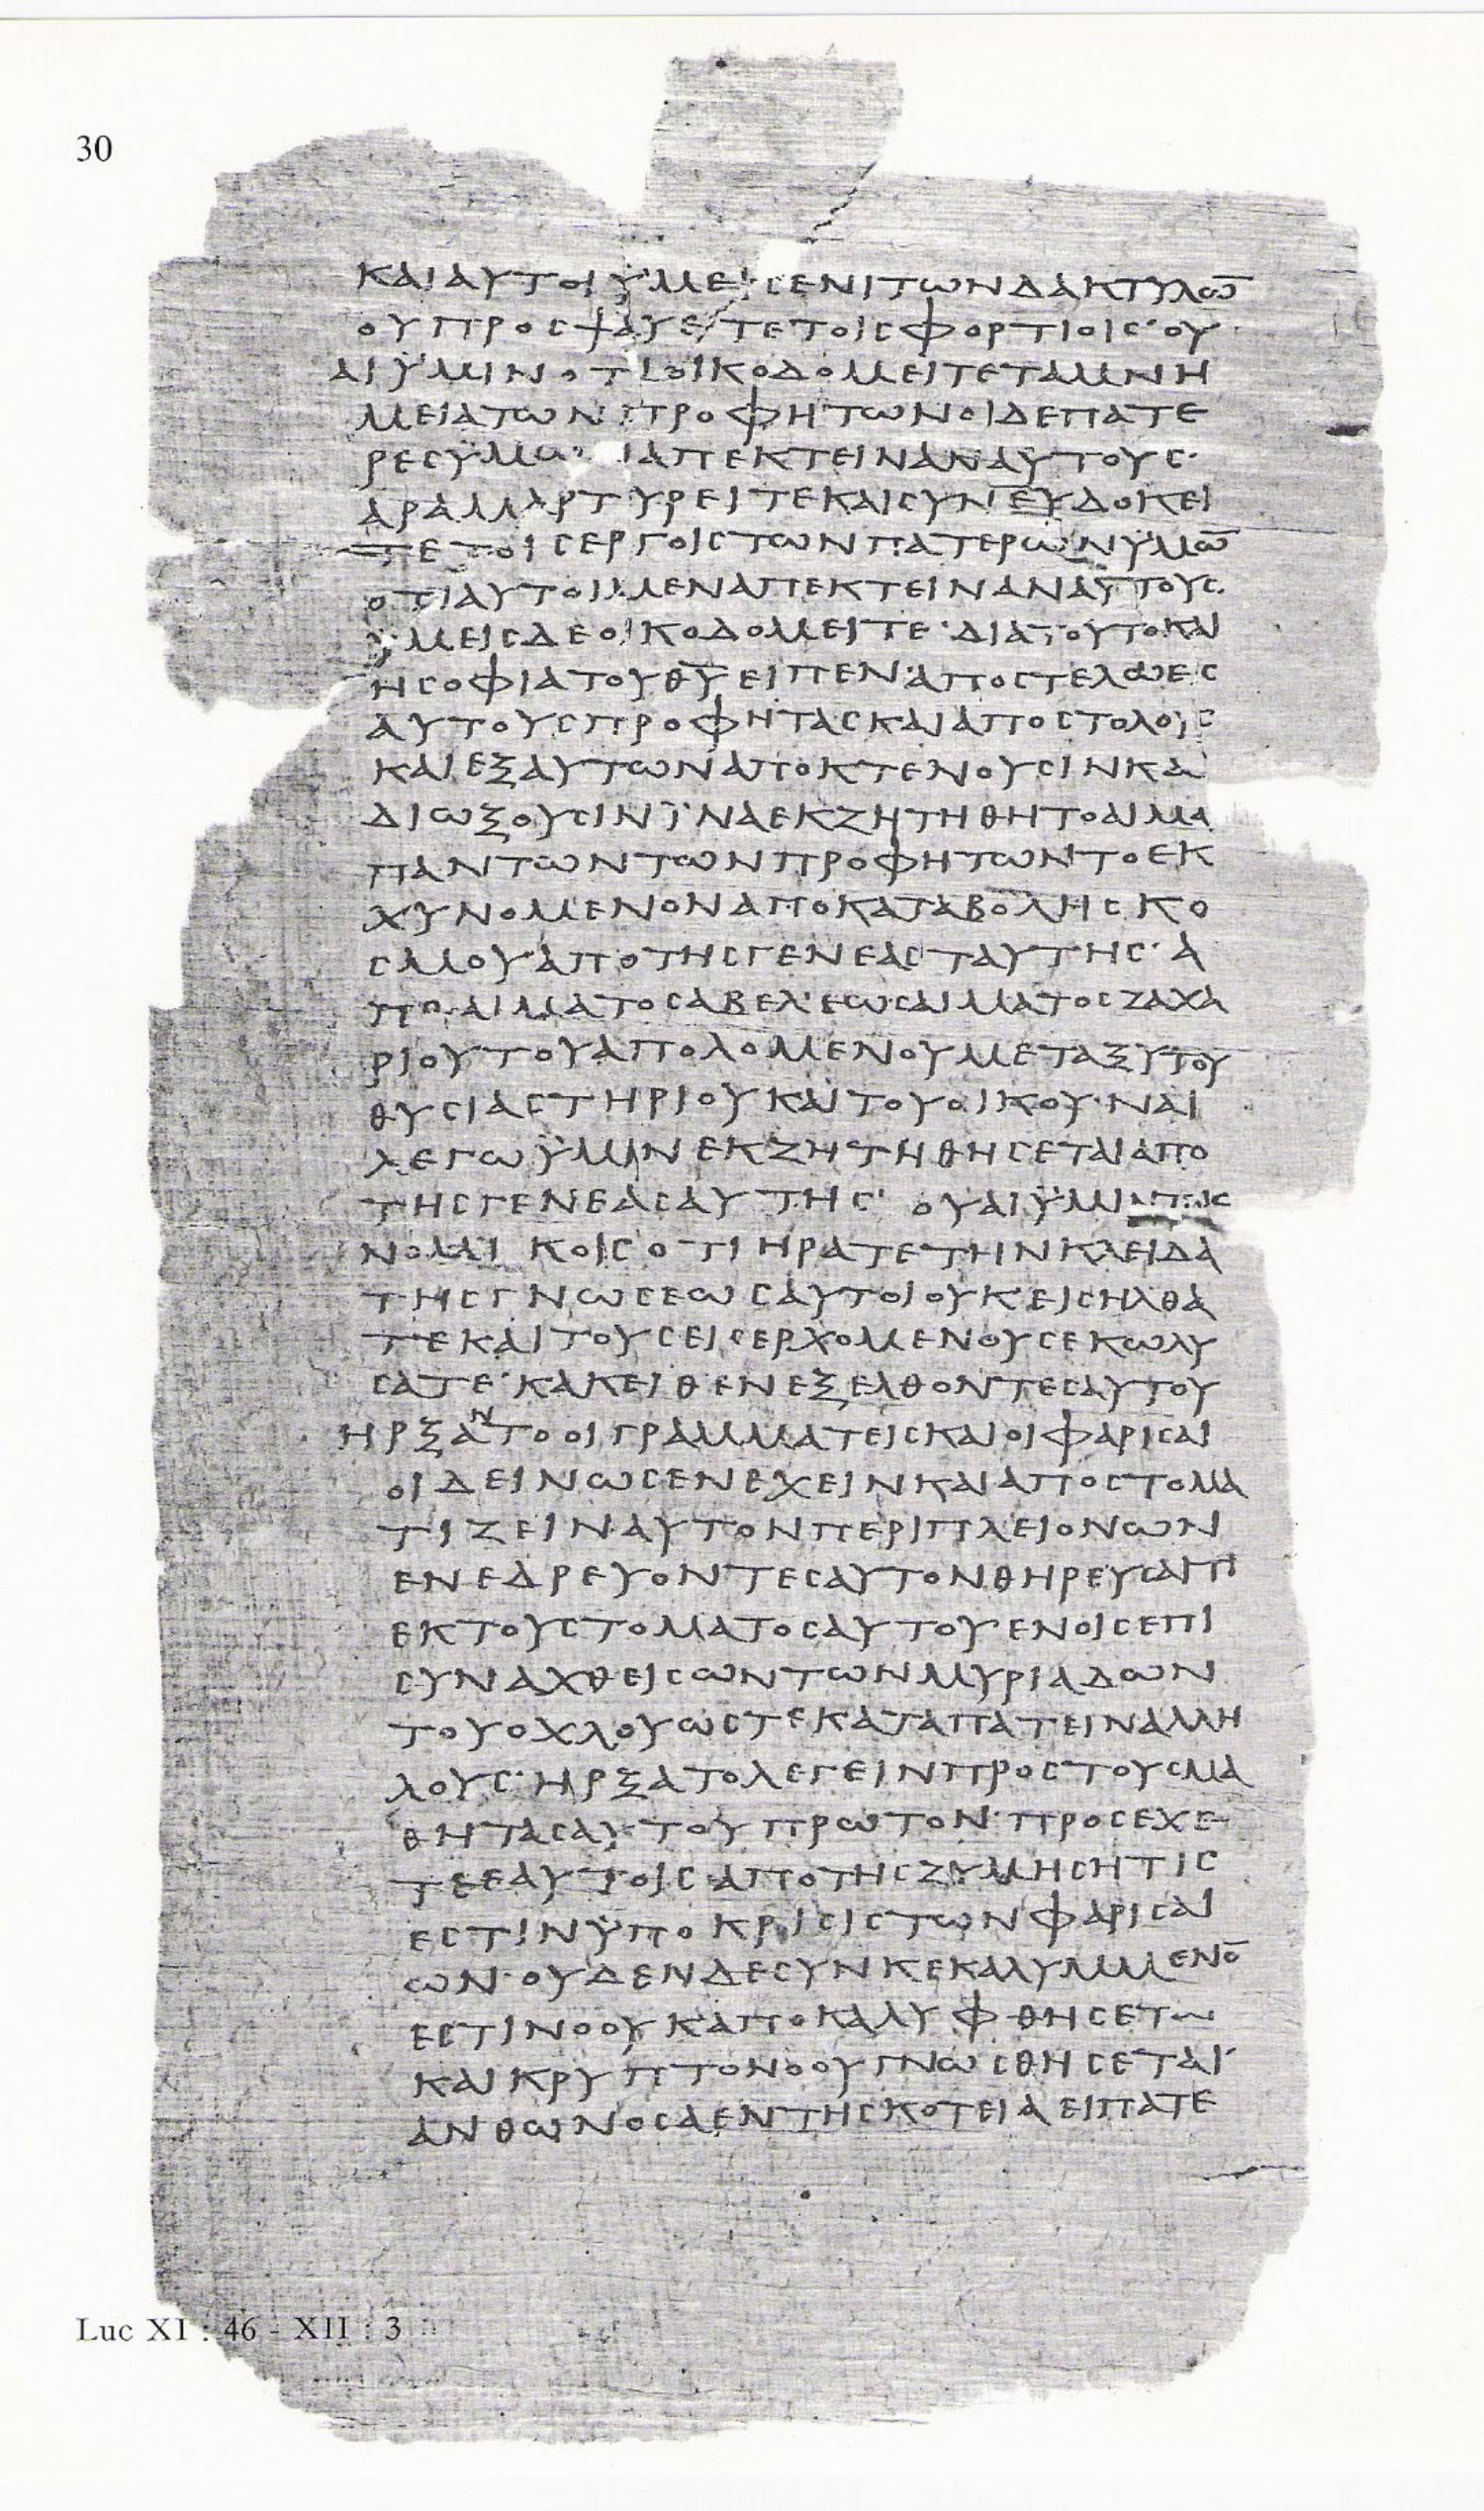 30
ΚΑΙΑΥΤΟΙΫΜΕΙCΕΝΙΤΩΝΔΑΚΤΥΛΩ̅
ΟΥΠΡΟCΨΑΥΕΤΕΤΟΙCΦΟΡΤΙΟΙC·ΟΥ
ΑΙΫΜΙΝΟΤΙΟΙΚΟΔΟΜΕΙΤΕΤΑΜΝΗ
ΜΕΙΑΤΩΝΠΡΟΦΗΤΩΝΟΙΔΕΠΑΤΕ
ΡΕCΫΜΩ ΑΠΕΚΤΕΙΝΑΝΑΥΤΟΥC·
ΑΡΑΜΑΡΤΥΡΕΙΤΕΚΑΙCΥΝΕΥΔΟΚΕΙ
ΤΕΤΟΙCΕΡΓΟΙCΤΩΝΠΑΤΕΡΩΝΫΜΩ̅
ΟΤΙΑΥΤΟΙΜΕΝΑΠΕΚΤΕΙΝΑΝΑΥΤΟΥC·
ΫΜΕΙCΔΕΟΙΚΟΔΟΜΕΙΤΕ·ΔΙΑΤΟΥΤΟΚΑΙ
ΗCΟΦΙΑΤΟΥΘ̅Υ̅ΕΙΠΕΝ·ΑΠΟCΤΕΛΩΕC
ΑΥΤΟΥCΠΡΟΦΗΤΑCΚΑΙΑΠΟCΤΟΛΟΥC
ΚΑΙΕΞΑΥΤΩΝΑΠΟΚΤΕΝΟΥCΙΝΚΑΙ
ΔΙΩΞΟΥCΙΝΪΝΑΕΚΖΗΤΗΘΗΤΟΑΙΜΑ
ΠΑΝΤΩΝΤΩΝΠΡΟΦΗΤΩΝΤΟΕΚ
ΧΥΝΟΜΕΝΟΝΑΠΟΚΑΤΑΒΟΛΗCΚΟ
CΜΟΥ·ΑΠΟΤΗCΓΕΝΕΑCΤΑΥΤΗC·Α
ΠΟΑΙΜΑΤΟCΑΒΕΛ·ΕΩCΑΙΜΑΤΟCΖΑΧΑ
ΡΙΟΥΤΟΥΑΠΟΛΟΜΕΝΟΥΜΕΤΑΞΥΤΟΥ
ΘΥCΙΑCΤΗΡΙΟΥΚΑΙΤΟΥΟΙΚΟΥ·ΝΑΙ
ΛΕΓΩΫΜΙΝΕΚΖΗΤΗΘΗCΕΤΑΙΑΠΟ
ΤΗCΓΕΝΕΑCΑΥΤΗC· ΟΥΑΙΫΜΙΝΤΟΙC
ΝΟΜΙΚΟΙCΟΤΙΗΡΑΤΕΤΗΝΚΛΕΙΔΑ
ΤΗCΓΝΩCΕΩCΑΥΤΟΙΟΥΚ·ΕΙCΗΛΘΑ
ΤΕΚΑΙΤΟΥCΕΙCΕΡΧΟΜΕΝΟΥCΕΚΩΛΥ
CΑΤΕ·ΚΑΚΕΙΘΕΝΕΞΕΛΘΟΝΤΕCΑΥΤΟΥ
ΗΡΞΑΝΤΟΟΙΓΡΑΜΜΑΤΕΙCΚΑΙΟΙΦΑΡΙCΑΙ
ΟΙΔΕΙΝΩCΕΝΕΧΕΙΝΚΑΙΑΠΟCΤΟΜΑ
ΤΙΖΕΙΝΑΥΤΟΝΠΕΡΙΠΛΕΙΟΝΩΝ
ΕΝΕΔΡΕΥΟΝΤΕCΑΥΤΟΝΘΗΡΕΥCΑΙΤΙ
ΕΚΤΟΥCΤΟΜΑΤΟCΑΥΤΟΥ·ΕΝΟΙCΕΠΙ
CΥΝΑΧΘΕΙCΩΝΤΩΝΜΥΡΙΑΔΩΝ
ΤΟΥΟΧΛΟΥΩCΤΕΚΑΤΑΠΑΤΕΙΝΑΛΛΗ
ΛΟΥC·ΗΡΞΑΤΟΛΕΓΕΙΝΠΡΟCΤΟΥCΜΑ
ΘΗΤΑCΑΥΤΟΥΠΡΩΤΟΝ·ΠΡΟCΕΧΕ
ΤΕΕΑΥΤΟΙCΑΠΟΤΗCΖΥΜΗCΗΤΙC
ΕCΤΙΝΫΠΟΚΡΙCΙCΤΩΝΦΑΡΙCΑΙ
ΩΝ·ΟΥΔΕΝΔΕCΥΝΚΕΚΑΛΥΜΜΕΝΟ̅
ΕCΤΙΝΟΟΥΚΑΠΟΚΑΛΥΦΘΗCΕΤΑΙ
ΚΑΙΚΡΥΠΤΟΝΟΟΥΓΝΩCΘΗCΕΤΑΙ·
ΑΝΘΩΝΟCΑΕΝΤΗCΚΟΤΕΙΑΕΙΠΑΤΕ
Luc XI : 46 - XII : 3